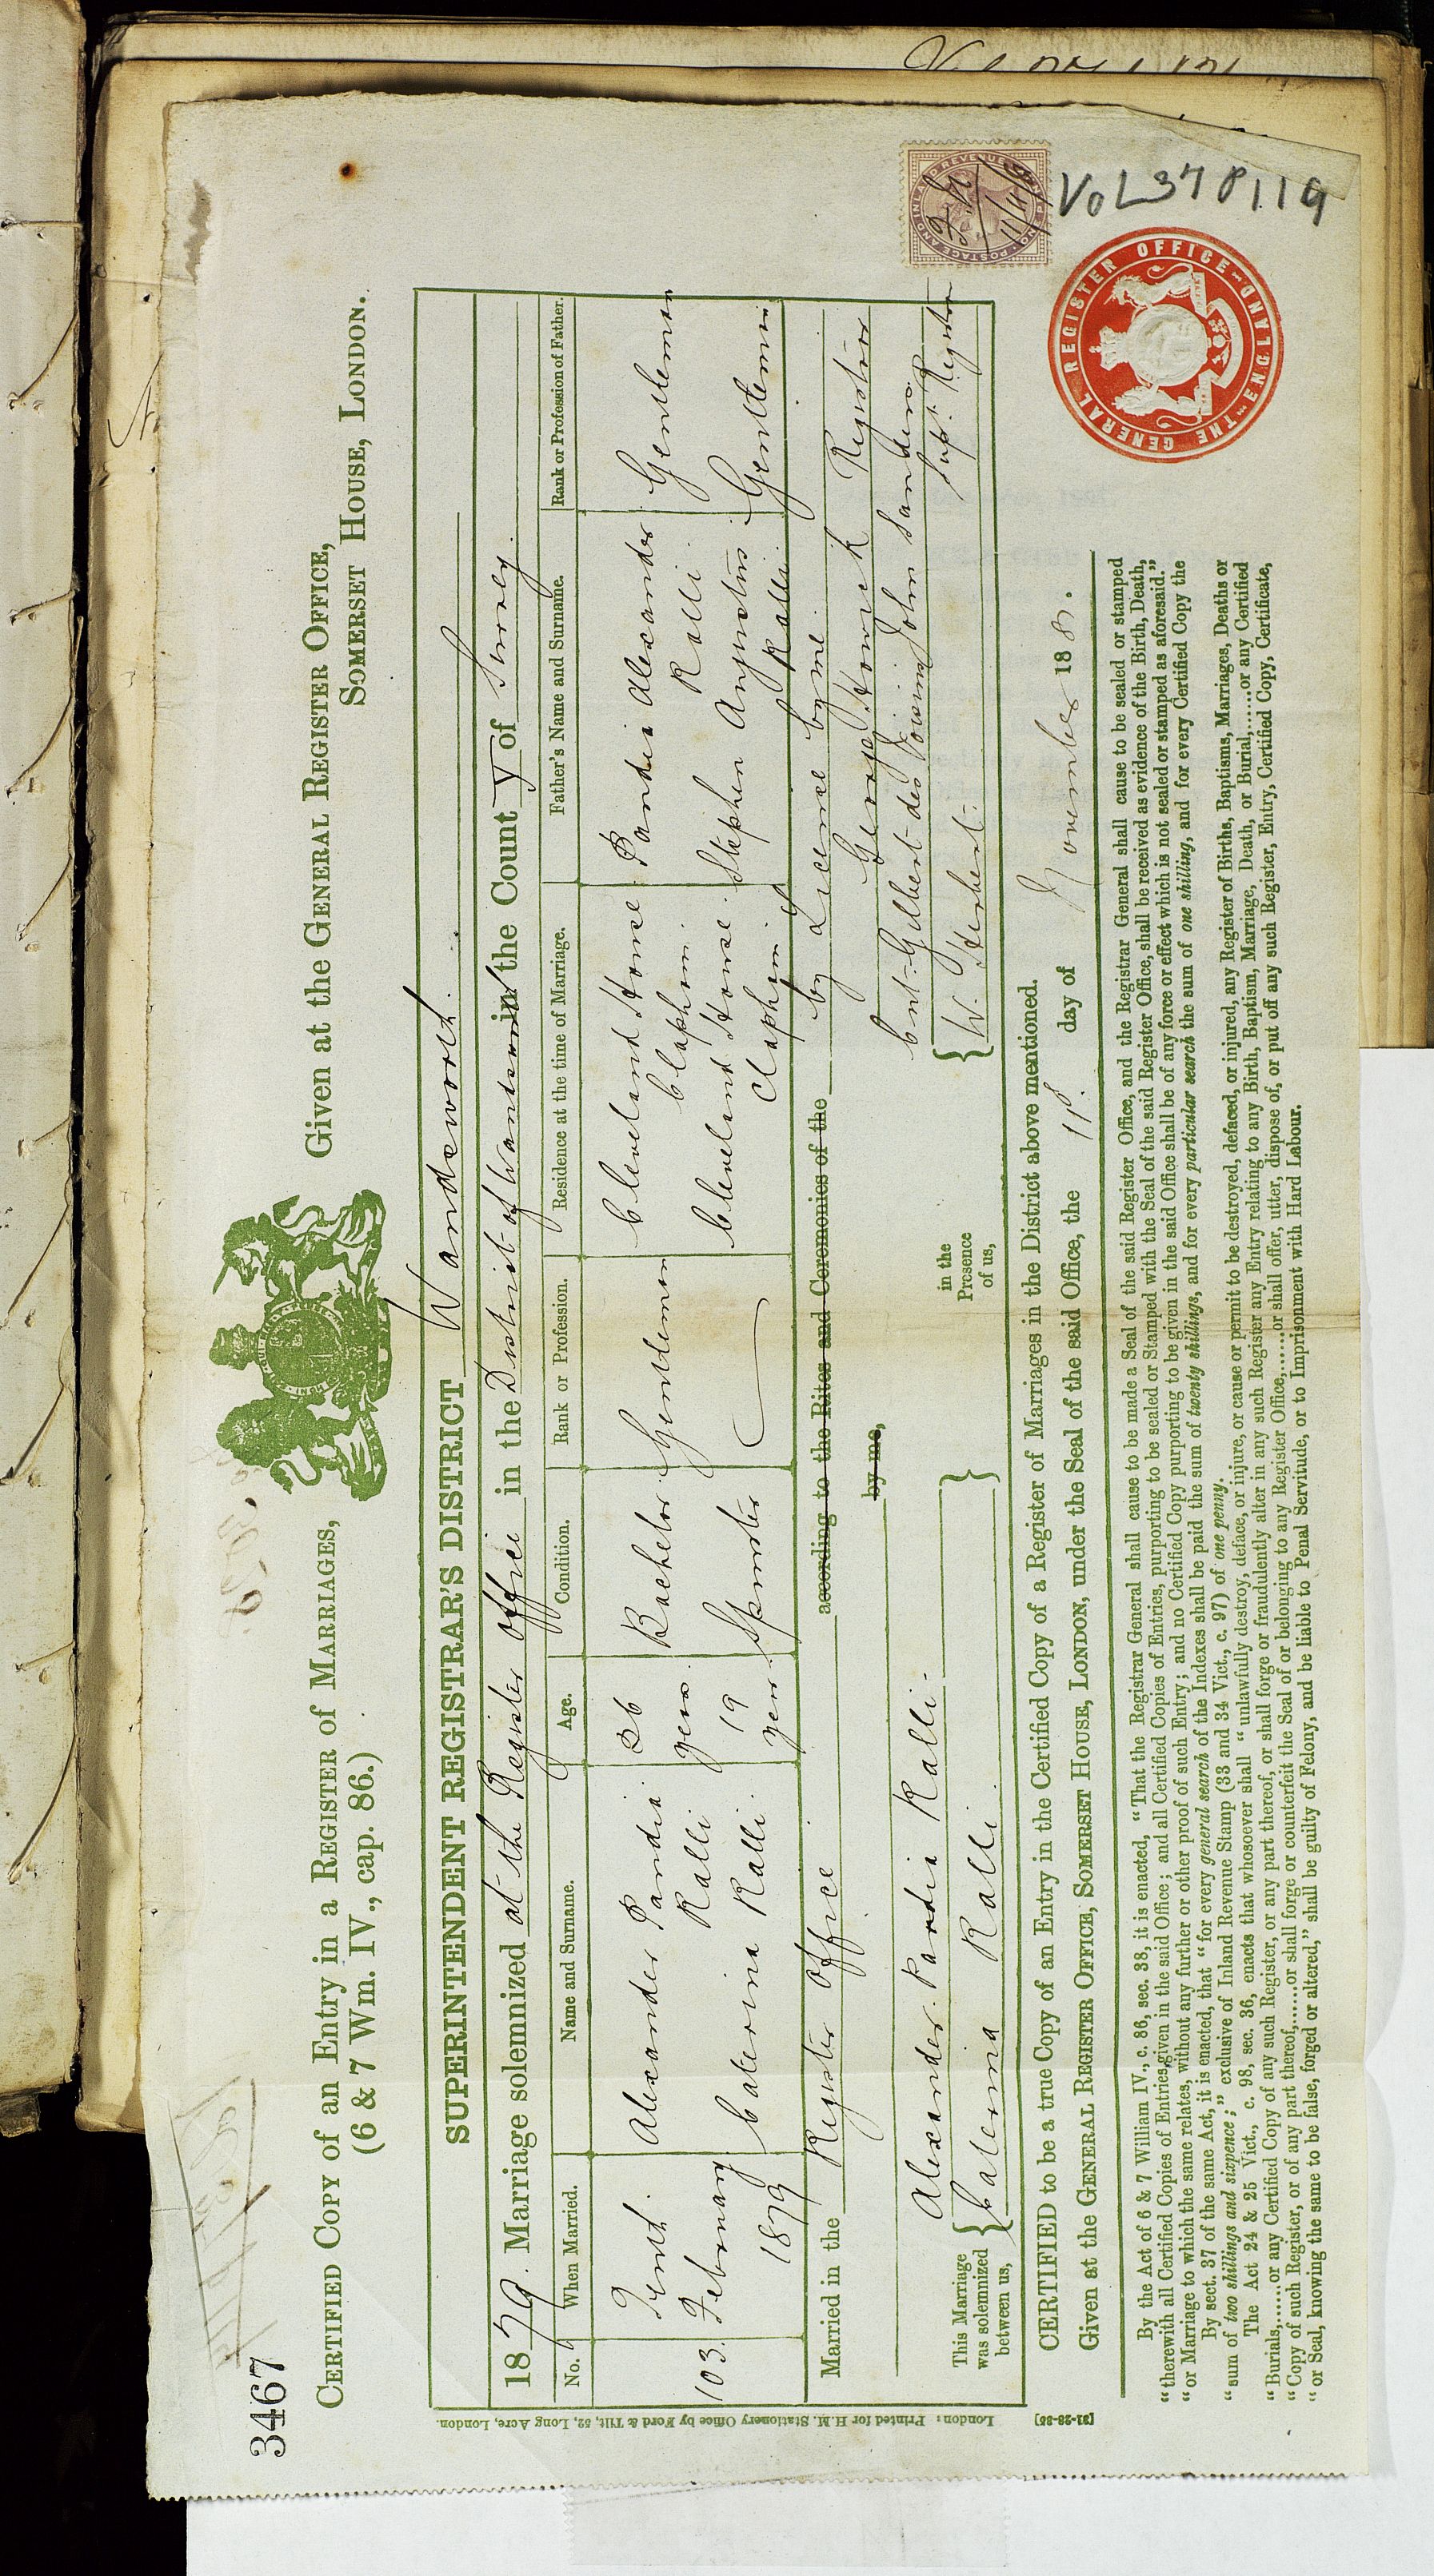 3467
CERTIFIED COPY of an Entry in a REGISTER of MARRIAGES,
(6 & 7 Wm. IV., cap. 86.)
Given at the GENERAL REGISTER OFFICE,
SOMERSET HOUSE, LONDON.
SUPERINTENDENT REGISTRAR'S DISTRICT Wandsworth.
1879. Marriage solemnized at the Register Office in the District of Wandsworth in the County of Surrey.
No. When Married. Name and Surname. Age. Condition. Rank or Profession. Residence at the time of Marriage. Father's Name and Surname. Rank or Profession of Father.
103. Tenth February 1879
Alexander Pandia Ralli 26 years Bachelor Gentleman Cleveland House Clapham. Pandia Alexander Ralli. Gentleman
Caterina Ralli. 19 years Spinster Cleveland House. Clapham. Stephen Augustus Ralli. Gentleman
Married in the Register Office according to the Rites and Ceremonies of the by Licence by me.
by me, George Horwick Registrar
This Marriage was solemnized between us,
Alexander Pandia Ralli.
Caterina Ralli
in the Presence of us,
Cut. Gilbert des Voisins John Sanders
W. Herbert. Supt. Registrar
CERTIFIED to be a true Copy of an Entry in the Certified Copy of a Register of Marriages in the District above mentioned.
Given at the GENERAL REGISTER OFFICE, SOMERSET HOUSE, LONDON, under the Seal of the said Office, the 11th day of November 188 .
By the Act of 6 & 7 William IV., c. 86, sec. 38, it is enacted, "That the Registrar General shall cause to be made a Seal of the said Register Office, and the Registrar General shall cause to be sealed or stamped
"therewith all Certified Copies of Entries given in the said Office; and all Certified Copies of Entries, purporting to be sealed or Stamped with the Seal of the said Register Office, shall be received as evidence of the Birth, Death,
"or Marriage to which the same relates, without any further or other proof of such Entry; and no Certified Copy purporting to be given in the said Office shall be of any force or effect which is not sealed or stamped as aforesaid."
By sect. 37 of the same Act, it is enacted, that "for every general search of the Indexes shall be paid the sum of twenty shillings, and for every particular search the sum of one shilling, and for every Certified Copy the
"sum of two shillings and sixpence;" exclusive of Inland Revenue Stamp (33 and 34 Vict., c. 97) of one penny.
The Act 24 & 25 Vict., c. 98, sec. 36, enacts that whosoever shall "unlawfully destroy, deface, or injure, or cause or permit to be destroyed, defaced, or injured, any Register of Births, Baptisms, Marriages, Deaths or
"Burials,......or any Certified Copy of any such Register, or any part thereof, or shall forge or fraudulently alter in any such Register any Entry relating to any Birth, Baptism, Marriage, Death, or Burial,......or any Certified
"Copy of such Register, or of any part thereof,......or shall forge or counterfeit the Seal of or belonging to any Register Office,......or shall offer, utter, dispose of, or put off any such Register, Entry, Certified Copy, Certificate,
"or Seal, knowing the same to be false, forged or altered," shall be guilty of Felony, and be liable to Penal Servitude, or to Imprisonment with Hard Labour.
London: Printed for H.M. Stationery Office by Ford & Tilt, 52, Long Acre, London.
POSTAGE AND INLAND REVENUE
ONE PENNY
11/11/8
VOL 37 P119
THE GENERAL REGISTER OFFICE ENGLAND